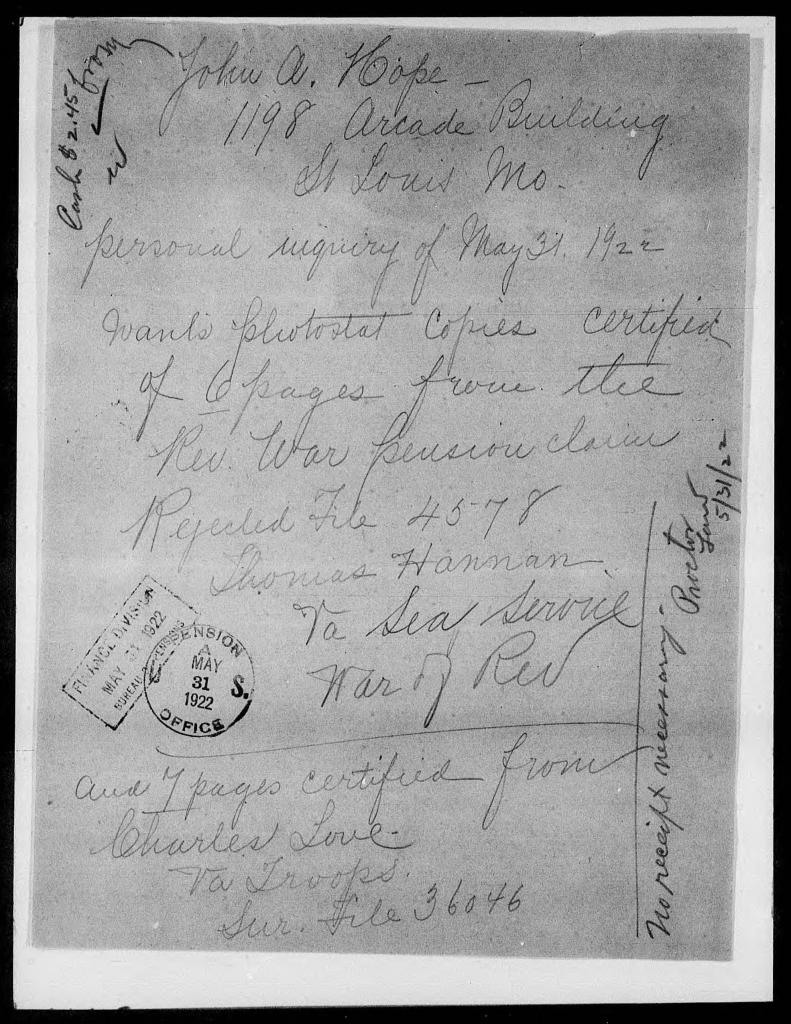 Cash $2.45
John A. Hope -
1198 Arcade Building
St Louis Mo.
personal inquiry of May 31. 1922
wants photostat copies certified
of 6 pages from the
Rev. War pension claim
Rejected File 4578
Thomas Hannan
Va Sea Service
War of Rev
FINANCE DIVISION
MAY 31 1922
BUREAU
PENSION
A
MAY
31
1922
S.
OFFICE
and 7 pages certified from
Charles Love -
Va Troops.
Sur. File 36046
No receipt necessary -
Proctor
5/31/22